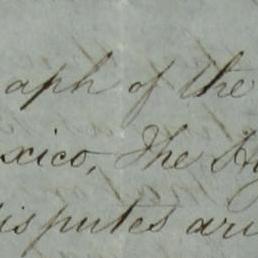 aph of the
xico, The Hy
isputes ari